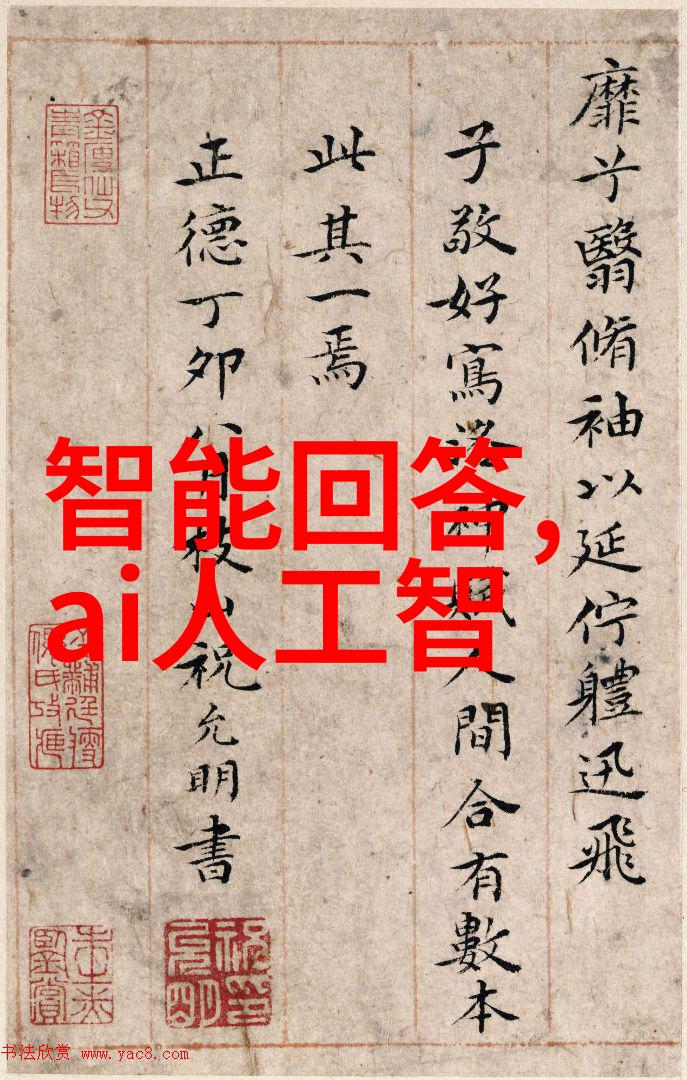 靡兮翳脩袖以延佇體迅飛
子敬好寫洛神賦人間合有數本
此其一焉
正德丁卯八月枝山祝允明書
智能回答,
ai人工智
书法欣赏 www.yac8.com